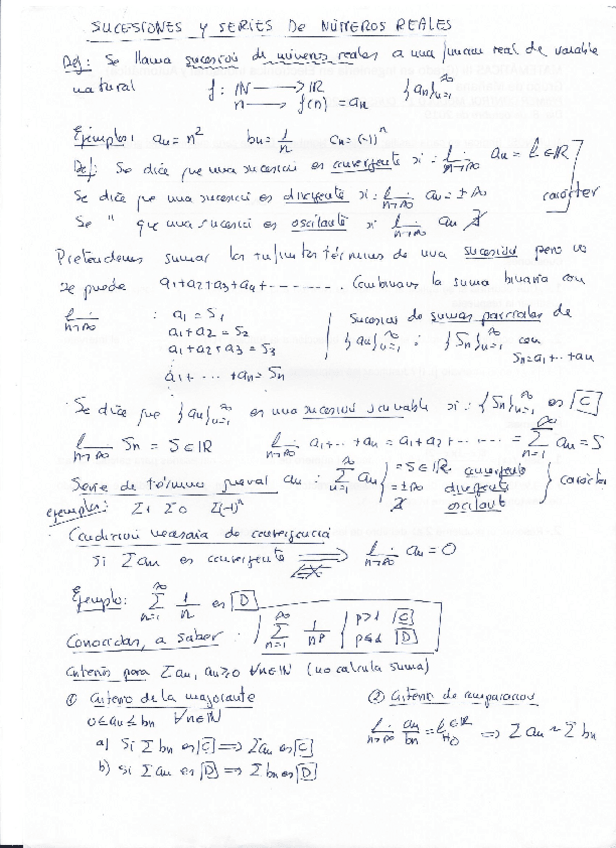 SUCESIONES Y SERIES DE NÚMEROS REALES
Def: Se llama sucesión de números reales a una función real de variable
natural f: IN → IR {an}_{n=1}^∞
n → f(n) = an
Ejemplos: an = n² bn = 1/n cn = (-1)^n
Def: Se dice que una sucesión es convergente si: lim_{n→∞} an = l ∈ IR
Se dice que una sucesión es divergente si: lim_{n→∞} an = ±∞ carácter
Se " que una sucesión es oscilante si lim_{n→∞} an ∄
Pretendemos sumar los infinitos términos de una sucesión pero no
se puede a1+a2+a3+a4+-------. Combinamos la suma binaria con
lim_{n→∞} : a1 = S1
a1+a2 = S2
a1+a2+a3 = S3
a1+...+an = Sn
Sucesión de sumas parciales de
{an}_{n=1}^∞ : {Sn}_{n=1}^∞ con
Sn = a1+...+an
Se dice que {an}_{n=1}^∞ es una sucesión sumable si: {Sn}_{n=1}^∞ es [C]
lim_{n→∞} Sn = S ∈ IR lim_{n→∞} a1+...+an = a1+a2+------ = ∑_{n=1}^∞ an = S
Serie de término general an : ∑_{n=1}^∞ an { = S ∈ IR convergente
= ±∞ divergente } carácter
∄ oscilante
ejemplos: Σ1 Σ0 Σ(-1)^n
Condición necesaria de convergencia
Si Σan es convergente ⟹ lim_{n→∞} an = 0
⇍
Ejemplo: ∑_{n=1}^∞ 1/n es [D]
Conocidas, a saber : ∑_{n=1}^∞ 1/n^p { p>1 [C]
p≤1 [D]
Criterios para Σan, an≥0 ∀n∈IN (no calcula suma)
① Criterio de la mayorante
0≤an≤bn ∀n∈IN
a) Si Σbn es [C] ⟹ Σan es [C]
b) Si Σan es [D] ⟹ Σbn es [D]
② Criterio de comparación
lim_{n→∞} an/bn = l ∈ IR ≠0 ⟹ Σan ~ Σbn